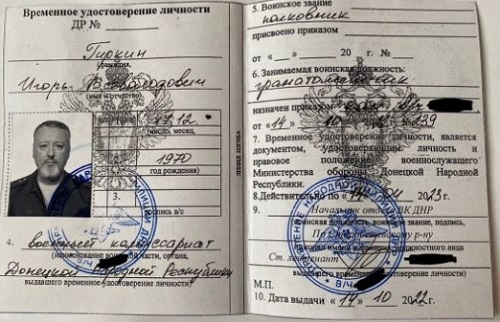 Временное удостоверение личности
ДР №
Гиркин
фамилия,
Игорь Всеволодович
имя и отчество)
17.12
число, месяц,
1970
год рождения)
3.
подпись в/с
4. военный комиссариат
(наименование воинской части, органа,
Донецкой Народной Республики
выдавшего временное удостоверение личности)
5. Воинское звание
полковник
присвоено приказом
от « » 20 г. №
6. Занимаемая воинская должность:
назначен приказом
от « 14 » 10 № 239
7. Временное удостоверение личности, является
документом, удостоверяющим личность и
правовое положение военнослужащего
Министерства обороны Донецкой Народной
Республики.
8. Действительно по « 14 » 04 2023 г.
9. Начальник отдела ВК ДНР
воинская должность, звание, подпись,
р-ну
должностного лица
Ст. лейтенант
выдавшего удостоверение личности)
М.П.
10. Дата выдачи « 14 » 10 2022 г.